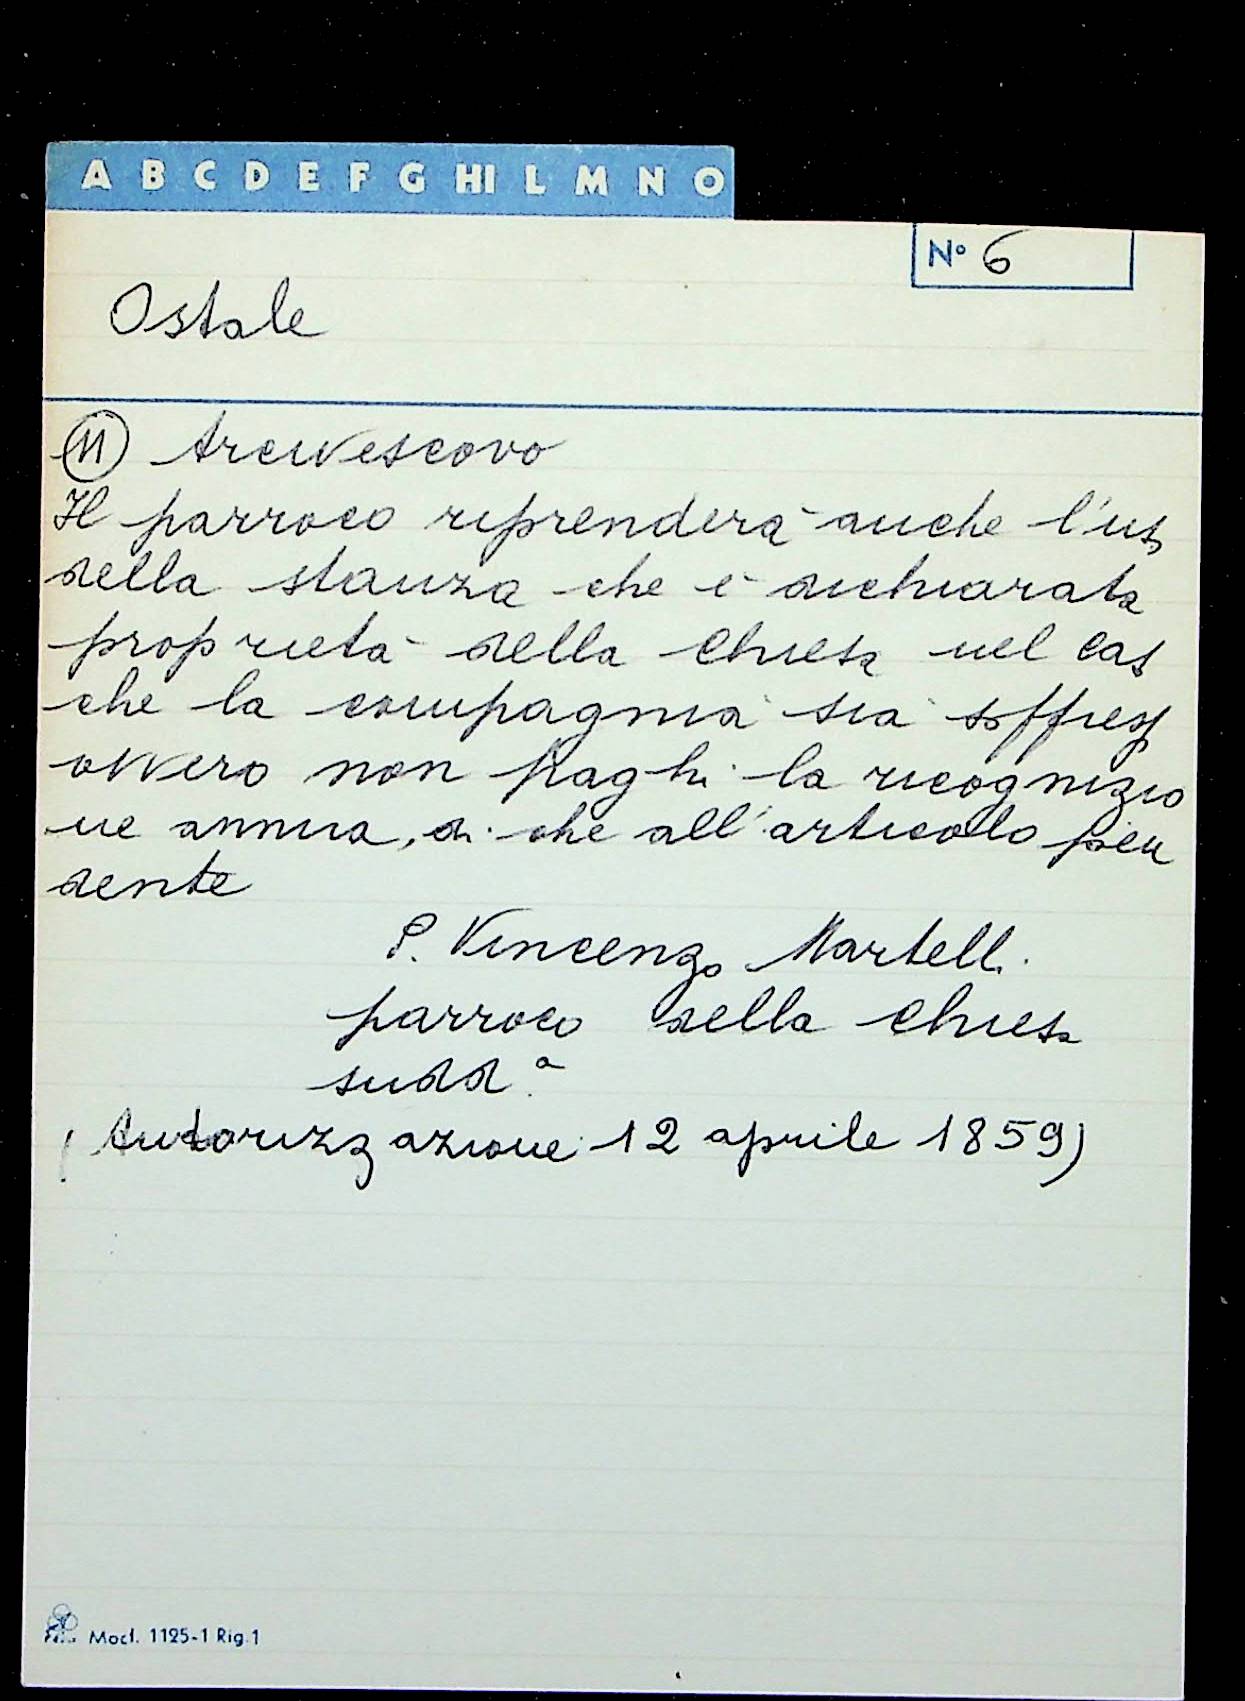 A B C D E F G HI L M N O
Nº 6
Ostale
11 Arcivescovo
Il parroco riprenderà anche l'uso
della stanza che è dichiarata
proprietà della Chiesa nel caso
che la compagnia sia
ovvero non paghi la ricognizio
ne annua, di che all'articolo
dente
P. Vincenzo Martelli
parroco della Chiesa
sudd.ª
(Autorizzazione 12 aprile 1859)
Mod. 1125-1 Rig.1